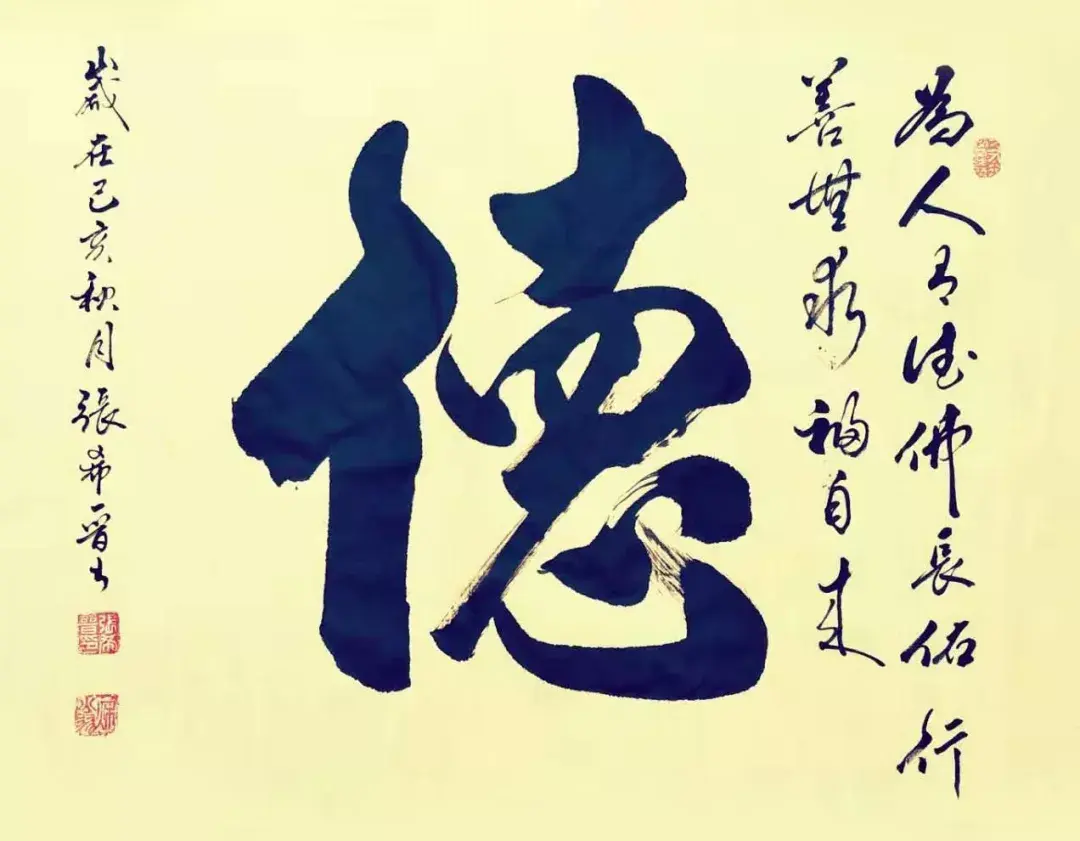 為人有德佛長佑行
善無求福自来
德
歲在己亥秋月張希晉书